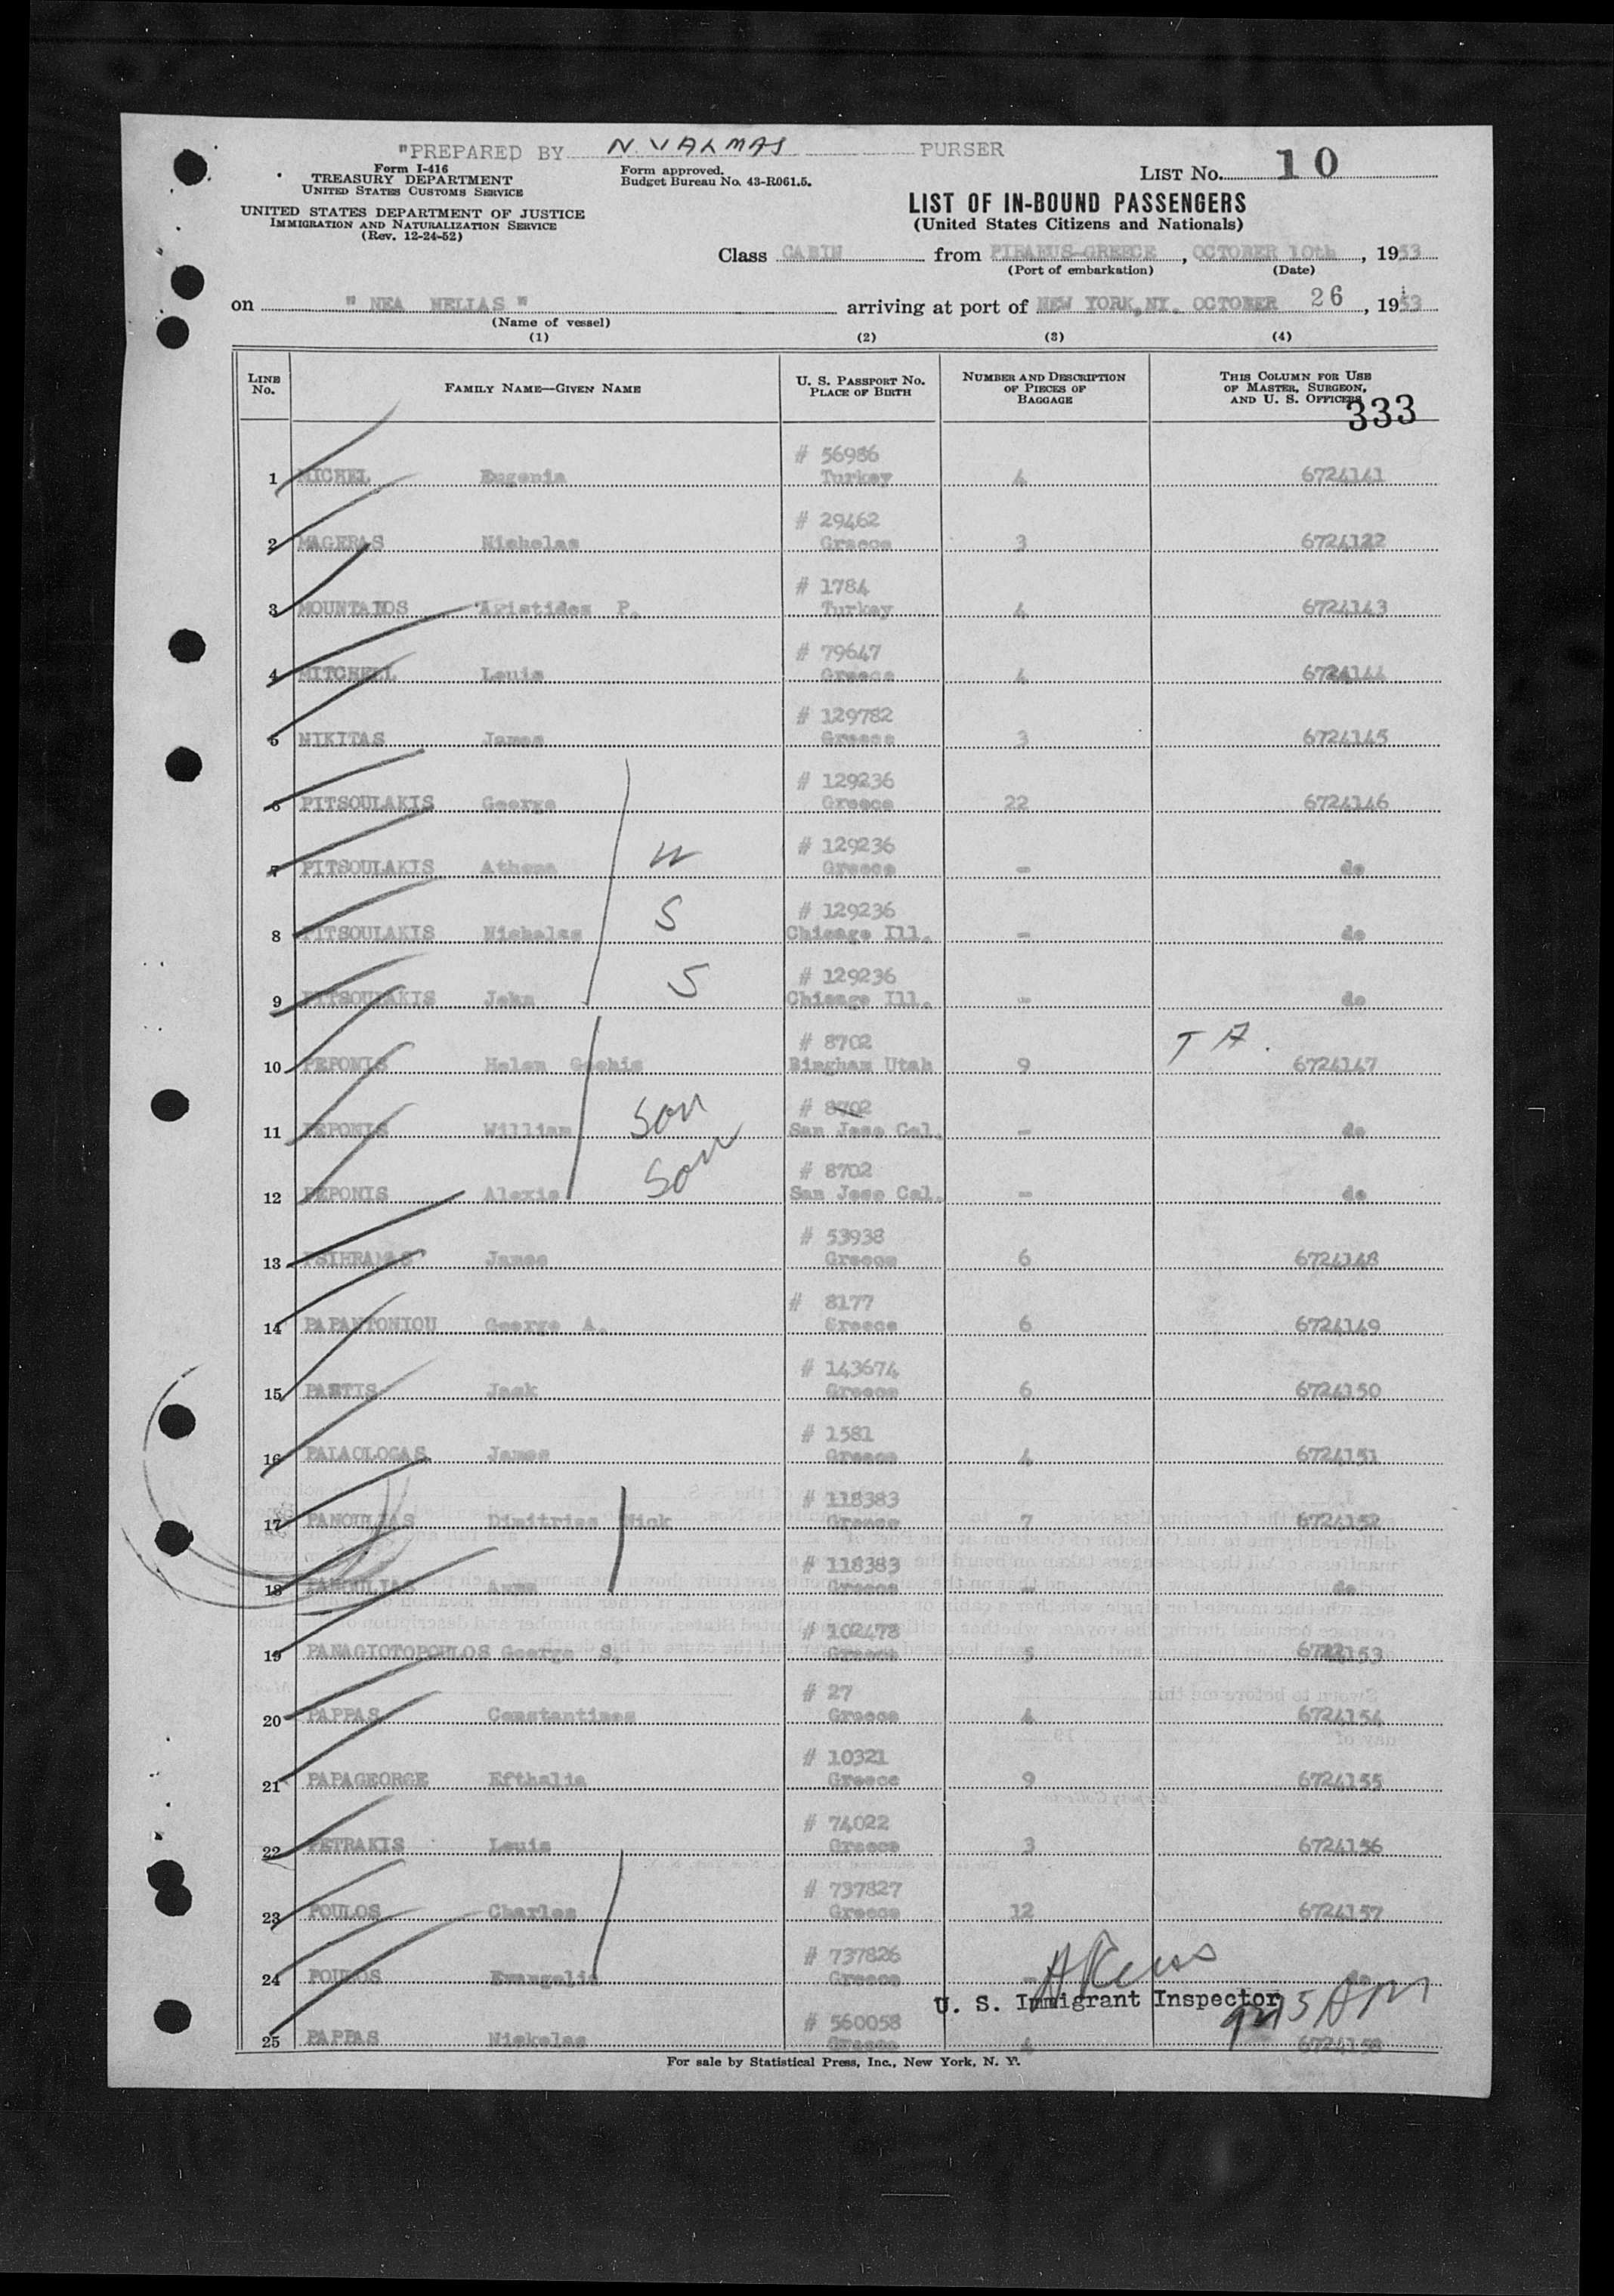 "PREPARED BY N. VALMAS PURSER
Form I-416
TREASURY DEPARTMENT
UNITED STATES CUSTOMS SERVICE
UNITED STATES DEPARTMENT OF JUSTICE
IMMIGRATION AND NATURALIZATION SERVICE
(Rev. 12-24-52)
Form approved.
Budget Bureau No. 43-R061.5.
LIST No. 10
LIST OF IN-BOUND PASSENGERS
(United States Citizens and Nationals)
Class CABIN from PIRAEUS-GREECE, OCTOBER 10th, 1953
(Port of embarkation) (Date)
on " NEA HELLAS " arriving at port of NEW YORK,NY. OCTOBER 26, 1953
(Name of vessel)
(1) (2) (3) (4)
LINE No. FAMILY NAME—GIVEN NAME U. S. PASSPORT No. PLACE OF BIRTH NUMBER AND DESCRIPTION OF PIECES OF BAGGAGE THIS COLUMN FOR USE OF MASTER, SURGEON, AND U. S. OFFICERS
333
# 56986
1 MICHEL Eugenia Turkey 4 6724141
# 29462
2 MAGERAS Nicholas Greece 3 6724122
# 1784
3 MOUNTANOS Aristides P. Turkey 4 6724143
# 79647
4 MITCHELL Louis Greece 4 6724144
# 129782
5 NIKITAS James Greece 3 6724145
# 129236
6 PITSOULAKIS George Greece 22 6724146
# 129236
7 PITSOULAKIS Athena W Greece - do
# 129236
8 PITSOULAKIS Nicholas S Chicago Ill. - do
# 129236
9 PITSOULAKIS John S Chicago Ill. - do
# 8702 T A.
10 PEPONIS Helen Gochis Bingham Utah 9 6724147
# 8702
11 PEPONIS William Son San Jose Cal. - do
# 8702
12 PEPONIS Alexis Son San Jose Cal. - do
# 53938
13 PSIHRAMAS James Greece 6 6724148
# 8177
14 PAPANTONIOU George A. Greece 6 6724149
# 143674
15 PASTIS Jack Greece 6 6724150
# 1581
16 PALAOLOGAS James Greece 4 6724151
# 118383
17 PANOULIAS Dimitrias Nick Greece 7 6724152
# 118383
18 PANOULIAS Anna Greece - do
# 102478
19 PANAGIOTOPOULOS George S. Greece 5
# 27
20 PAPPAS Constantinos Greece 4 6724154
# 10321
21 PAPAGEORGE Efthalia Greece 9 6724155
# 74022
22 PETRAKIS Louis Greece 3 6724156
# 737827
23 POULOS Charles Greece 12 6724157
# 737826
24 POULOS Evangelia Greece - do
U. S. Immigrant Inspector
# 560058
25 PAPPAS Nickolas Greece 4 6724158
For sale by Statistical Press, Inc., New York, N. Y.